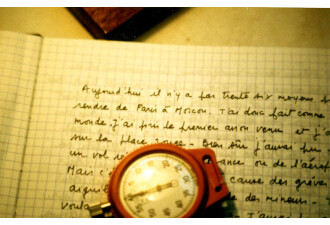 Aujourd'hui il n'y a pas trente six moyens
rendre de Paris à Moscou. J'ai donc fait comme
monde j'ai pris le premier avion venu et j'
sur la place rouge. Bien sûr j'aurais pu
un vol ou de l'aéro
Mais c' cause des grèves
aiguil des mineurs.
voula J'aurais